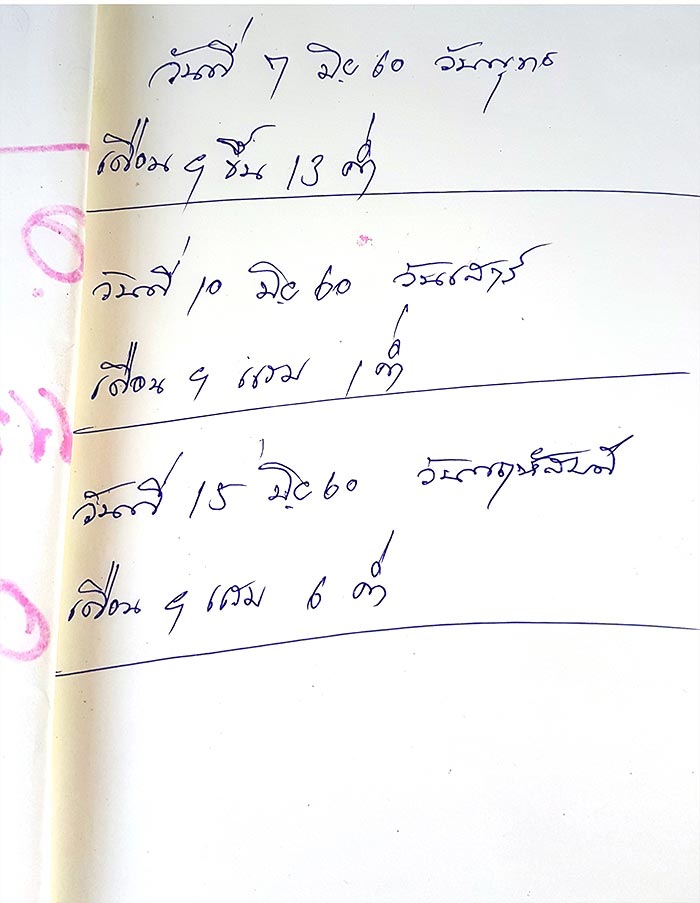 วันที่ 7 มิ.ย 60 วันพุทธ
เดือน 7 ขึ้น 13 ค่ำ
วันที่ 10 มิ.ย 60 วันเสาร์
เดือน 7 แรม 1 ค่ำ
วันที่ 15 มิ.ย 60 วันพฤหัสบดี
เดือน 7 แรม 6 ค่ำ